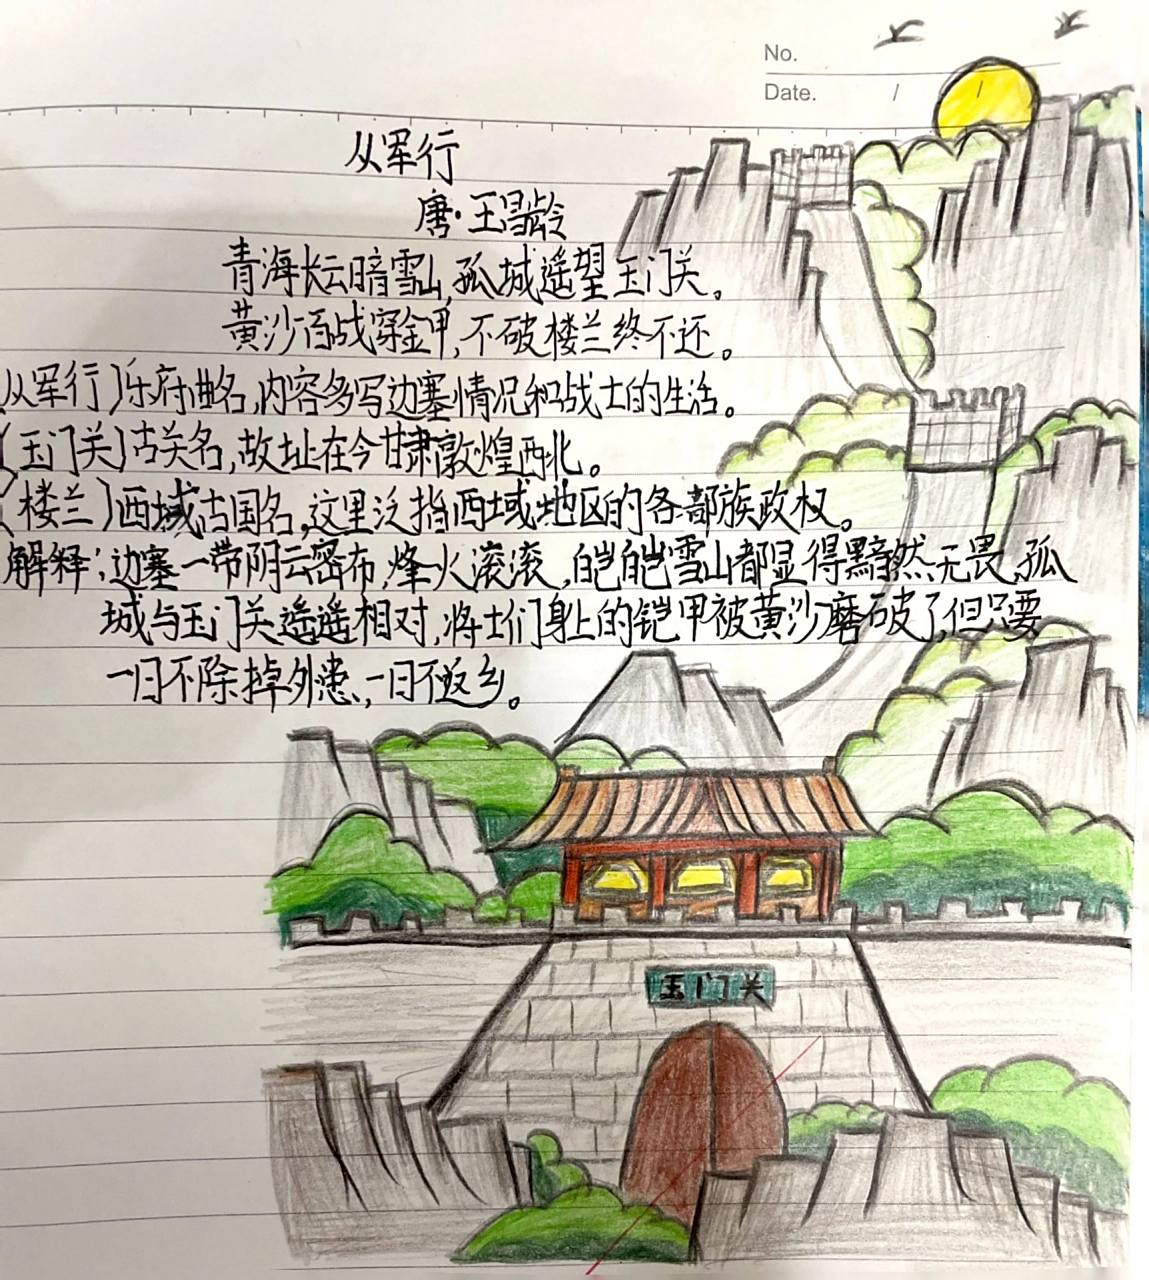 No.
Date. / /
从军行
唐·王昌龄
青海长云暗雪山,孤城遥望玉门关。
黄沙百战穿金甲,不破楼兰终不还。
(从军行)乐府曲名,内容多写边塞情况和战士的生活。
(玉门关)古关名,故址在今甘肃敦煌西北。
(楼兰)西域古国名,这里泛指西域地区的各部族政权。
解释:边塞一带阴云密布,烽火滚滚,皑皑雪山都显得黯然无畏,孤
城与玉门关遥遥相对,将士们身上的铠甲被黄沙磨破了,但只要
一日不除掉外患,一日不返乡。
玉门关